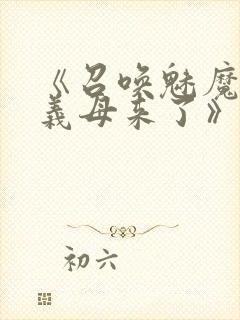 《召唤魅魔
義母来了》
初六